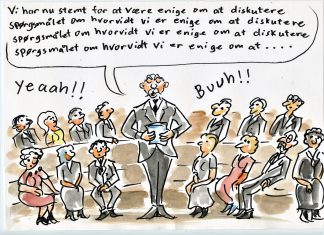 Vi har nu stemt for at være enige om at diskutere
spørgsmålet om hvorvidt vi er enige om at diskutere
spørgsmålet om hvorvidt vi er enige om at diskutere
spørgsmålet om hvorvidt vi er enige om at ....
Yeaah!!
Buuh!!